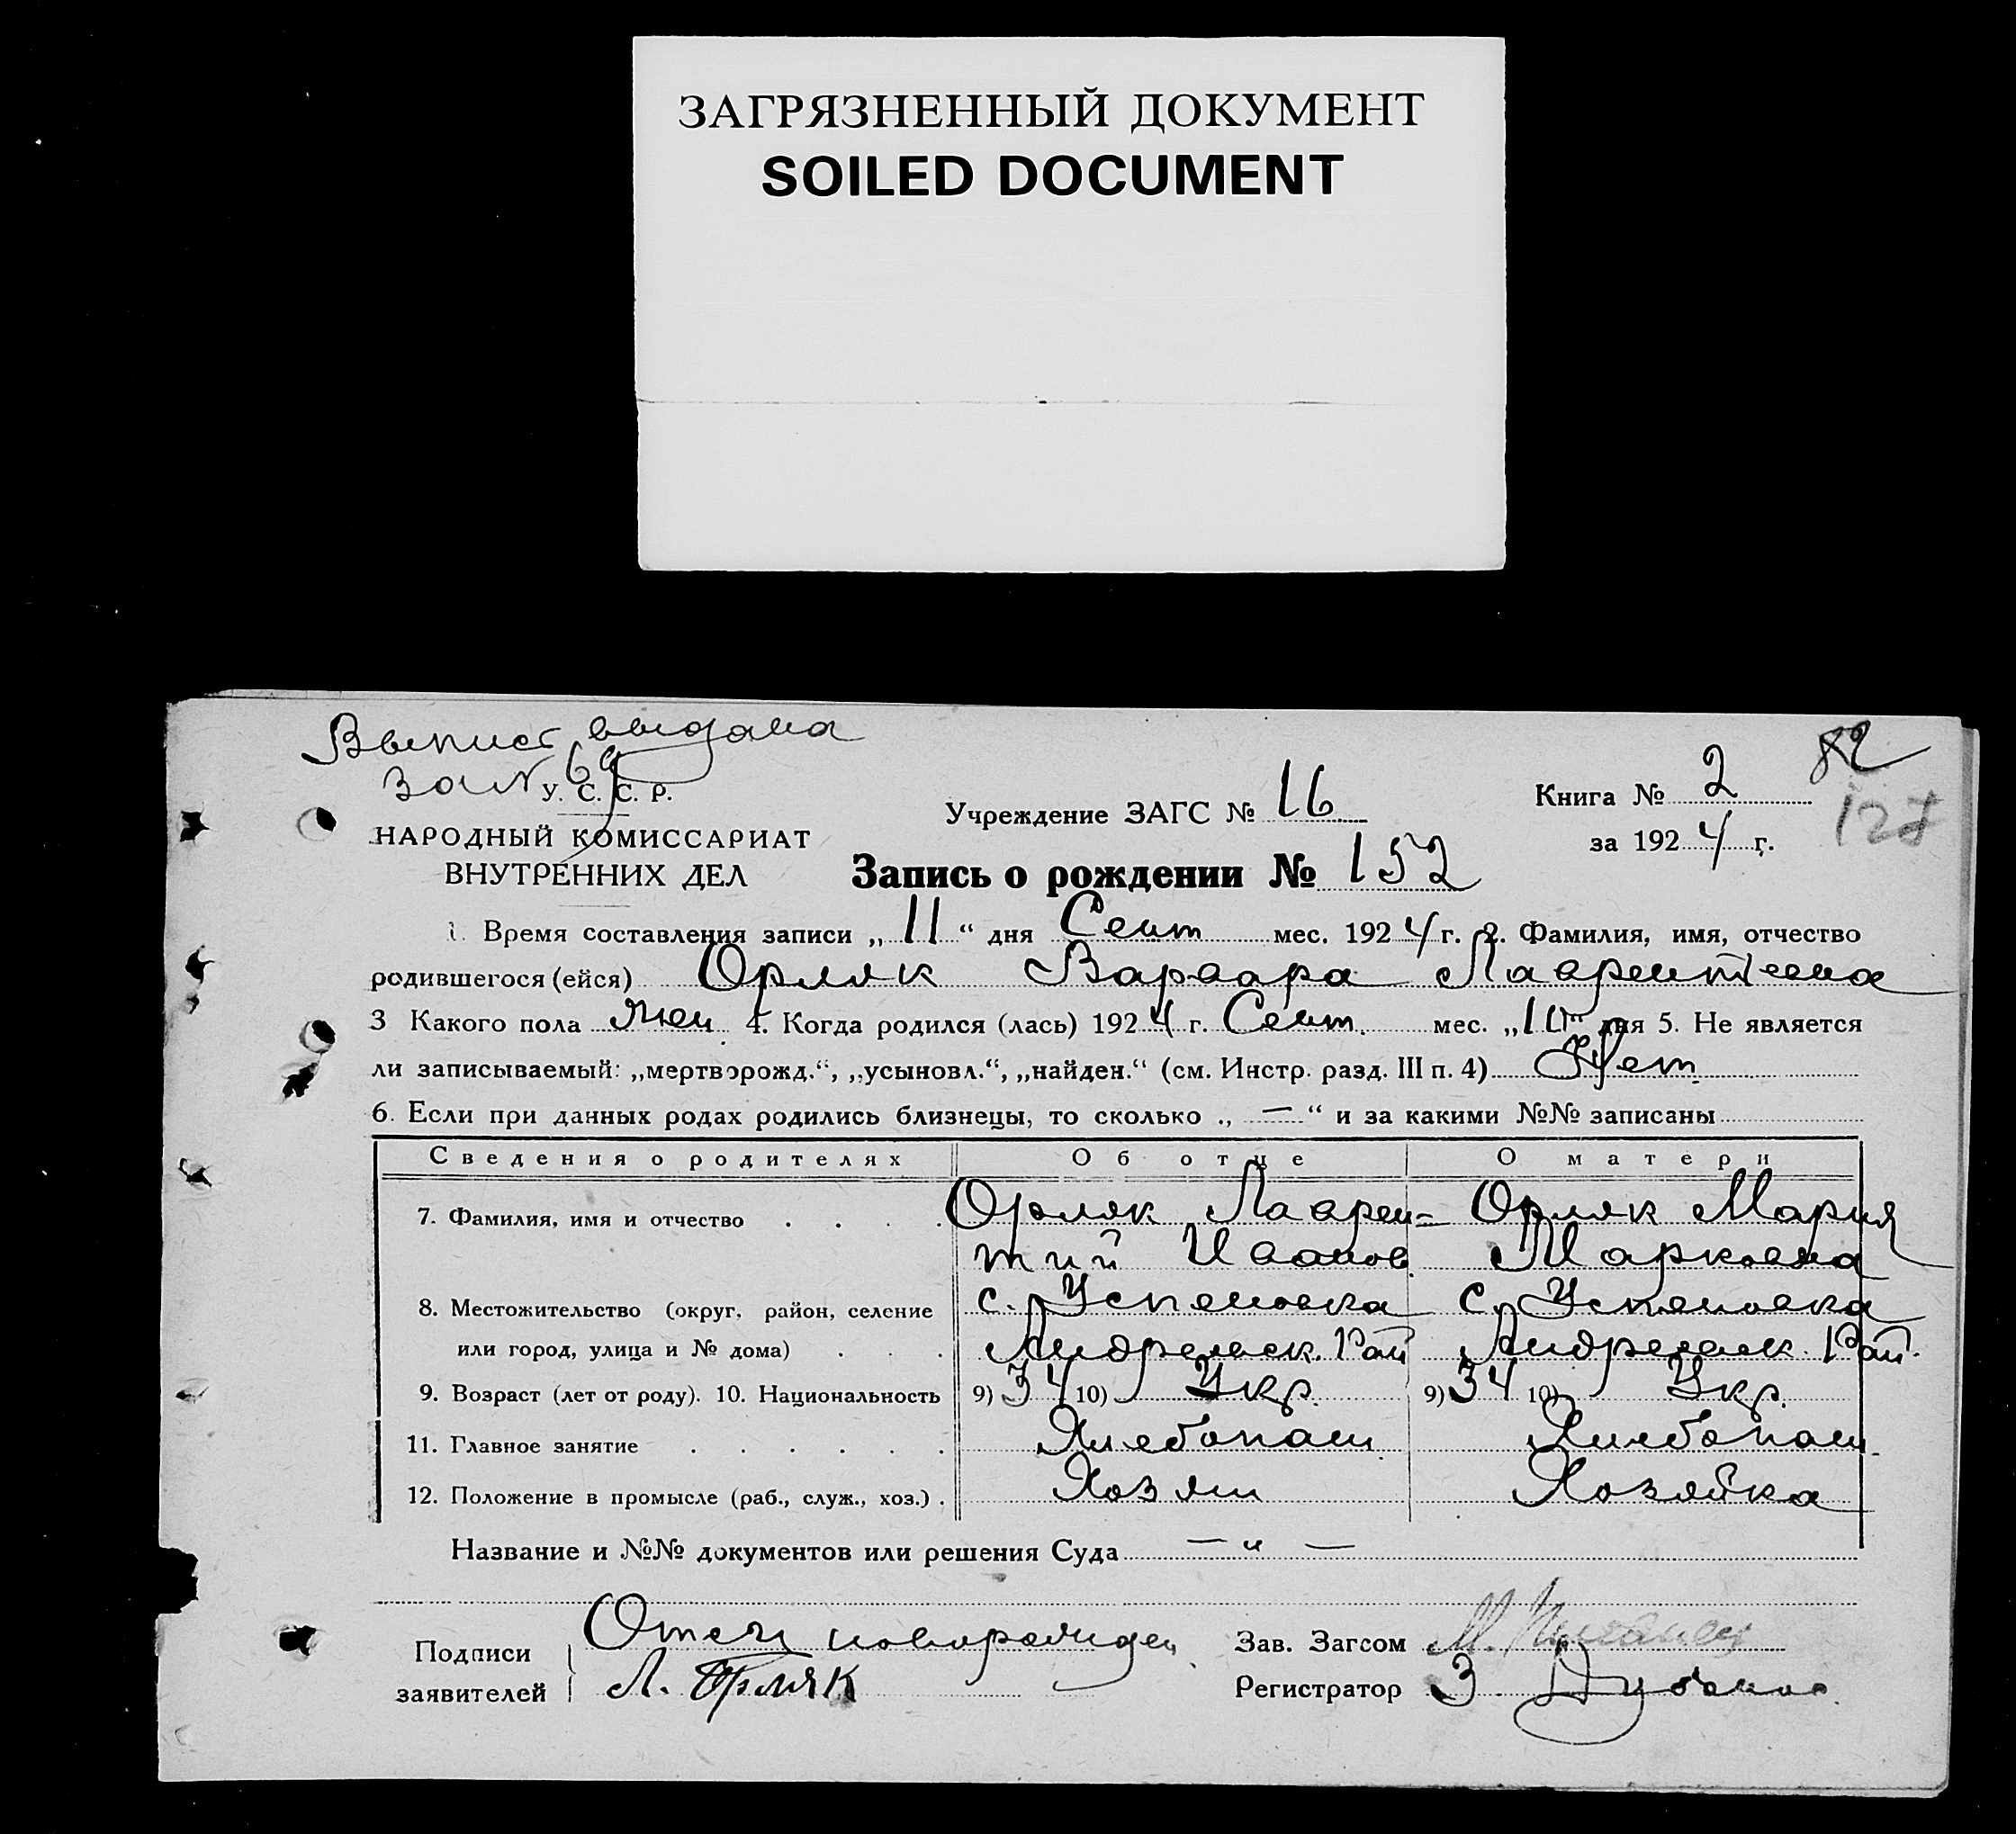 ЗАГРЯЗНЕННЫЙ ДОКУМЕНТ
SOILED DOCUMENT
Выпис выдана
за № 69
82
У. С. С. Р.
НАРОДНЫЙ КОМИССАРИАТ
ВНУТРЕННИХ ДЕЛ
Учреждение ЗАГС № 16
Книга № 2
за 1924 г.
Запись о рождении № 152
1. Время составления записи „11“ дня Сент мес. 1924 г. 2. Фамилия, имя, отчество
родившегося (ейся) Орляк Варвара Лаврентьевна
3 Какого пола жен 4. Когда родился (лась) 1924 г. Сент. мес. „ “ дня 5. Не является
ли записываемый: „мертворожд.“, „усыновл.“, „найден.“ (см. Инстр. разд. III п. 4) Нет
6. Если при данных родах родились близнецы, то сколько „ — “ и за какими №№ записаны
Сведения о родителях Об отце О матери
7. Фамилия, имя и отчество . . . . Орляк Лаврен= Орляк Мария
тий Иванов. Марковна
8. Местожительство (округ, район, селение с. Успеновка с. Успеновка
или город, улица и № дома) . . . Андреевск. Рай Андреевск. Рай.
9. Возраст (лет от роду). 10. Национальность 9) 34 10) Укр. 9) 34 10) Укр.
11. Главное занятие . . . . . . Хлебопаш Хлебопаш.
12. Положение в промысле (раб., служ., хоз.) . Хозяин Хозяйка
Название и №№ документов или решения Суда — „ —
Подписи заявителей
Отец новорожден.
Л. Орляк
Зав. Загсом М.
Регистратор З